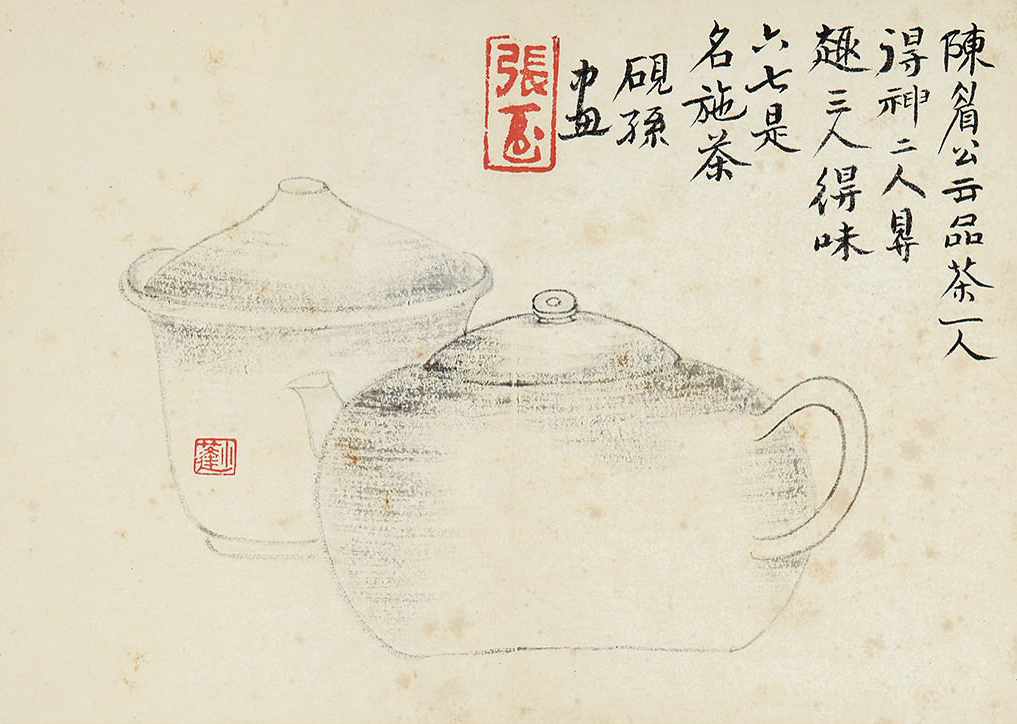 陳眉公云品茶一人
得神二人㝵
趣三人得味
六七是
名施茶
硯孫
畫
張
小蓬